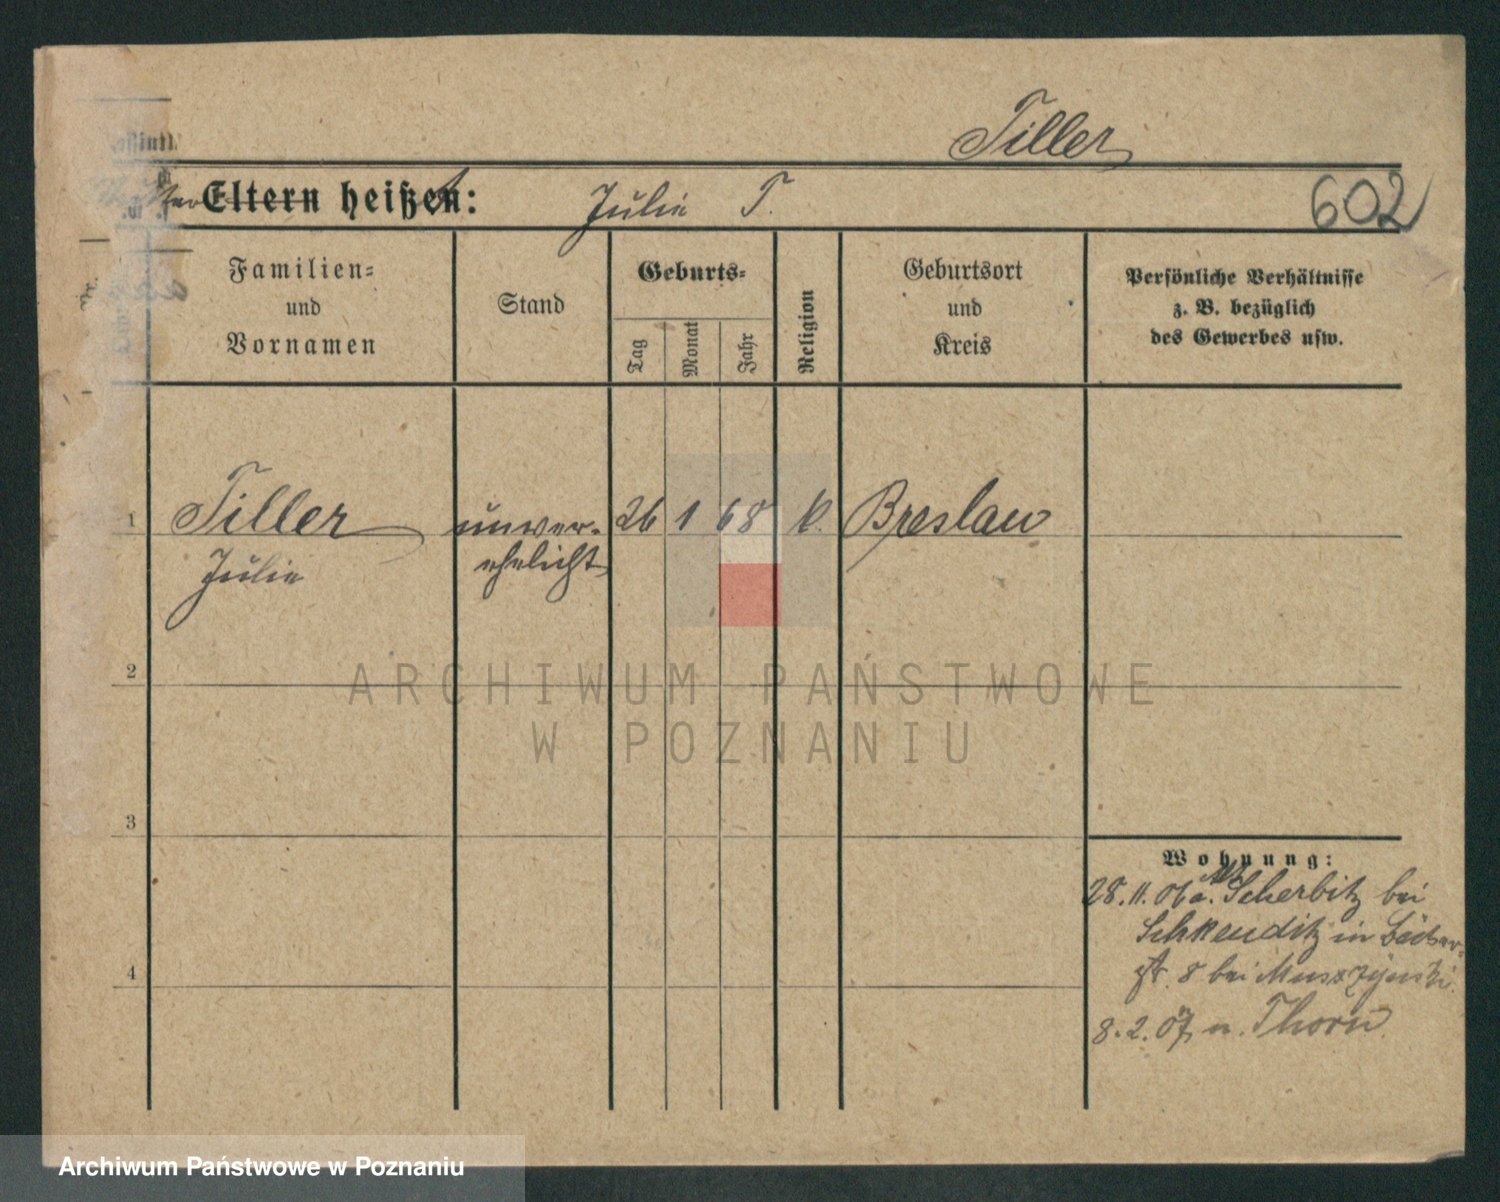 Tiller
Eltern heißen:
Julie T.
602
Familien=
und
Vornamen
Stand
Geburts=
Tag
Monat
Jahr
Religion
Geburtsort
und
Kreis
Persönliche Verhältnisse
z. B. bezüglich
des Gewerbes usw.
1
Tiller
Julie
unver-
ehelicht
26
1
68
k.
Breslau
2
3
4
Wohnung:
28.11.06 a. Alt
Scherbitz bei
Schkeuditz in
8 bei Muszynski
8.2.07 n. Thorn
ARCHIWUM PAŃSTWOWE
W POZNANIU
Archiwum Państwowe w Poznaniu